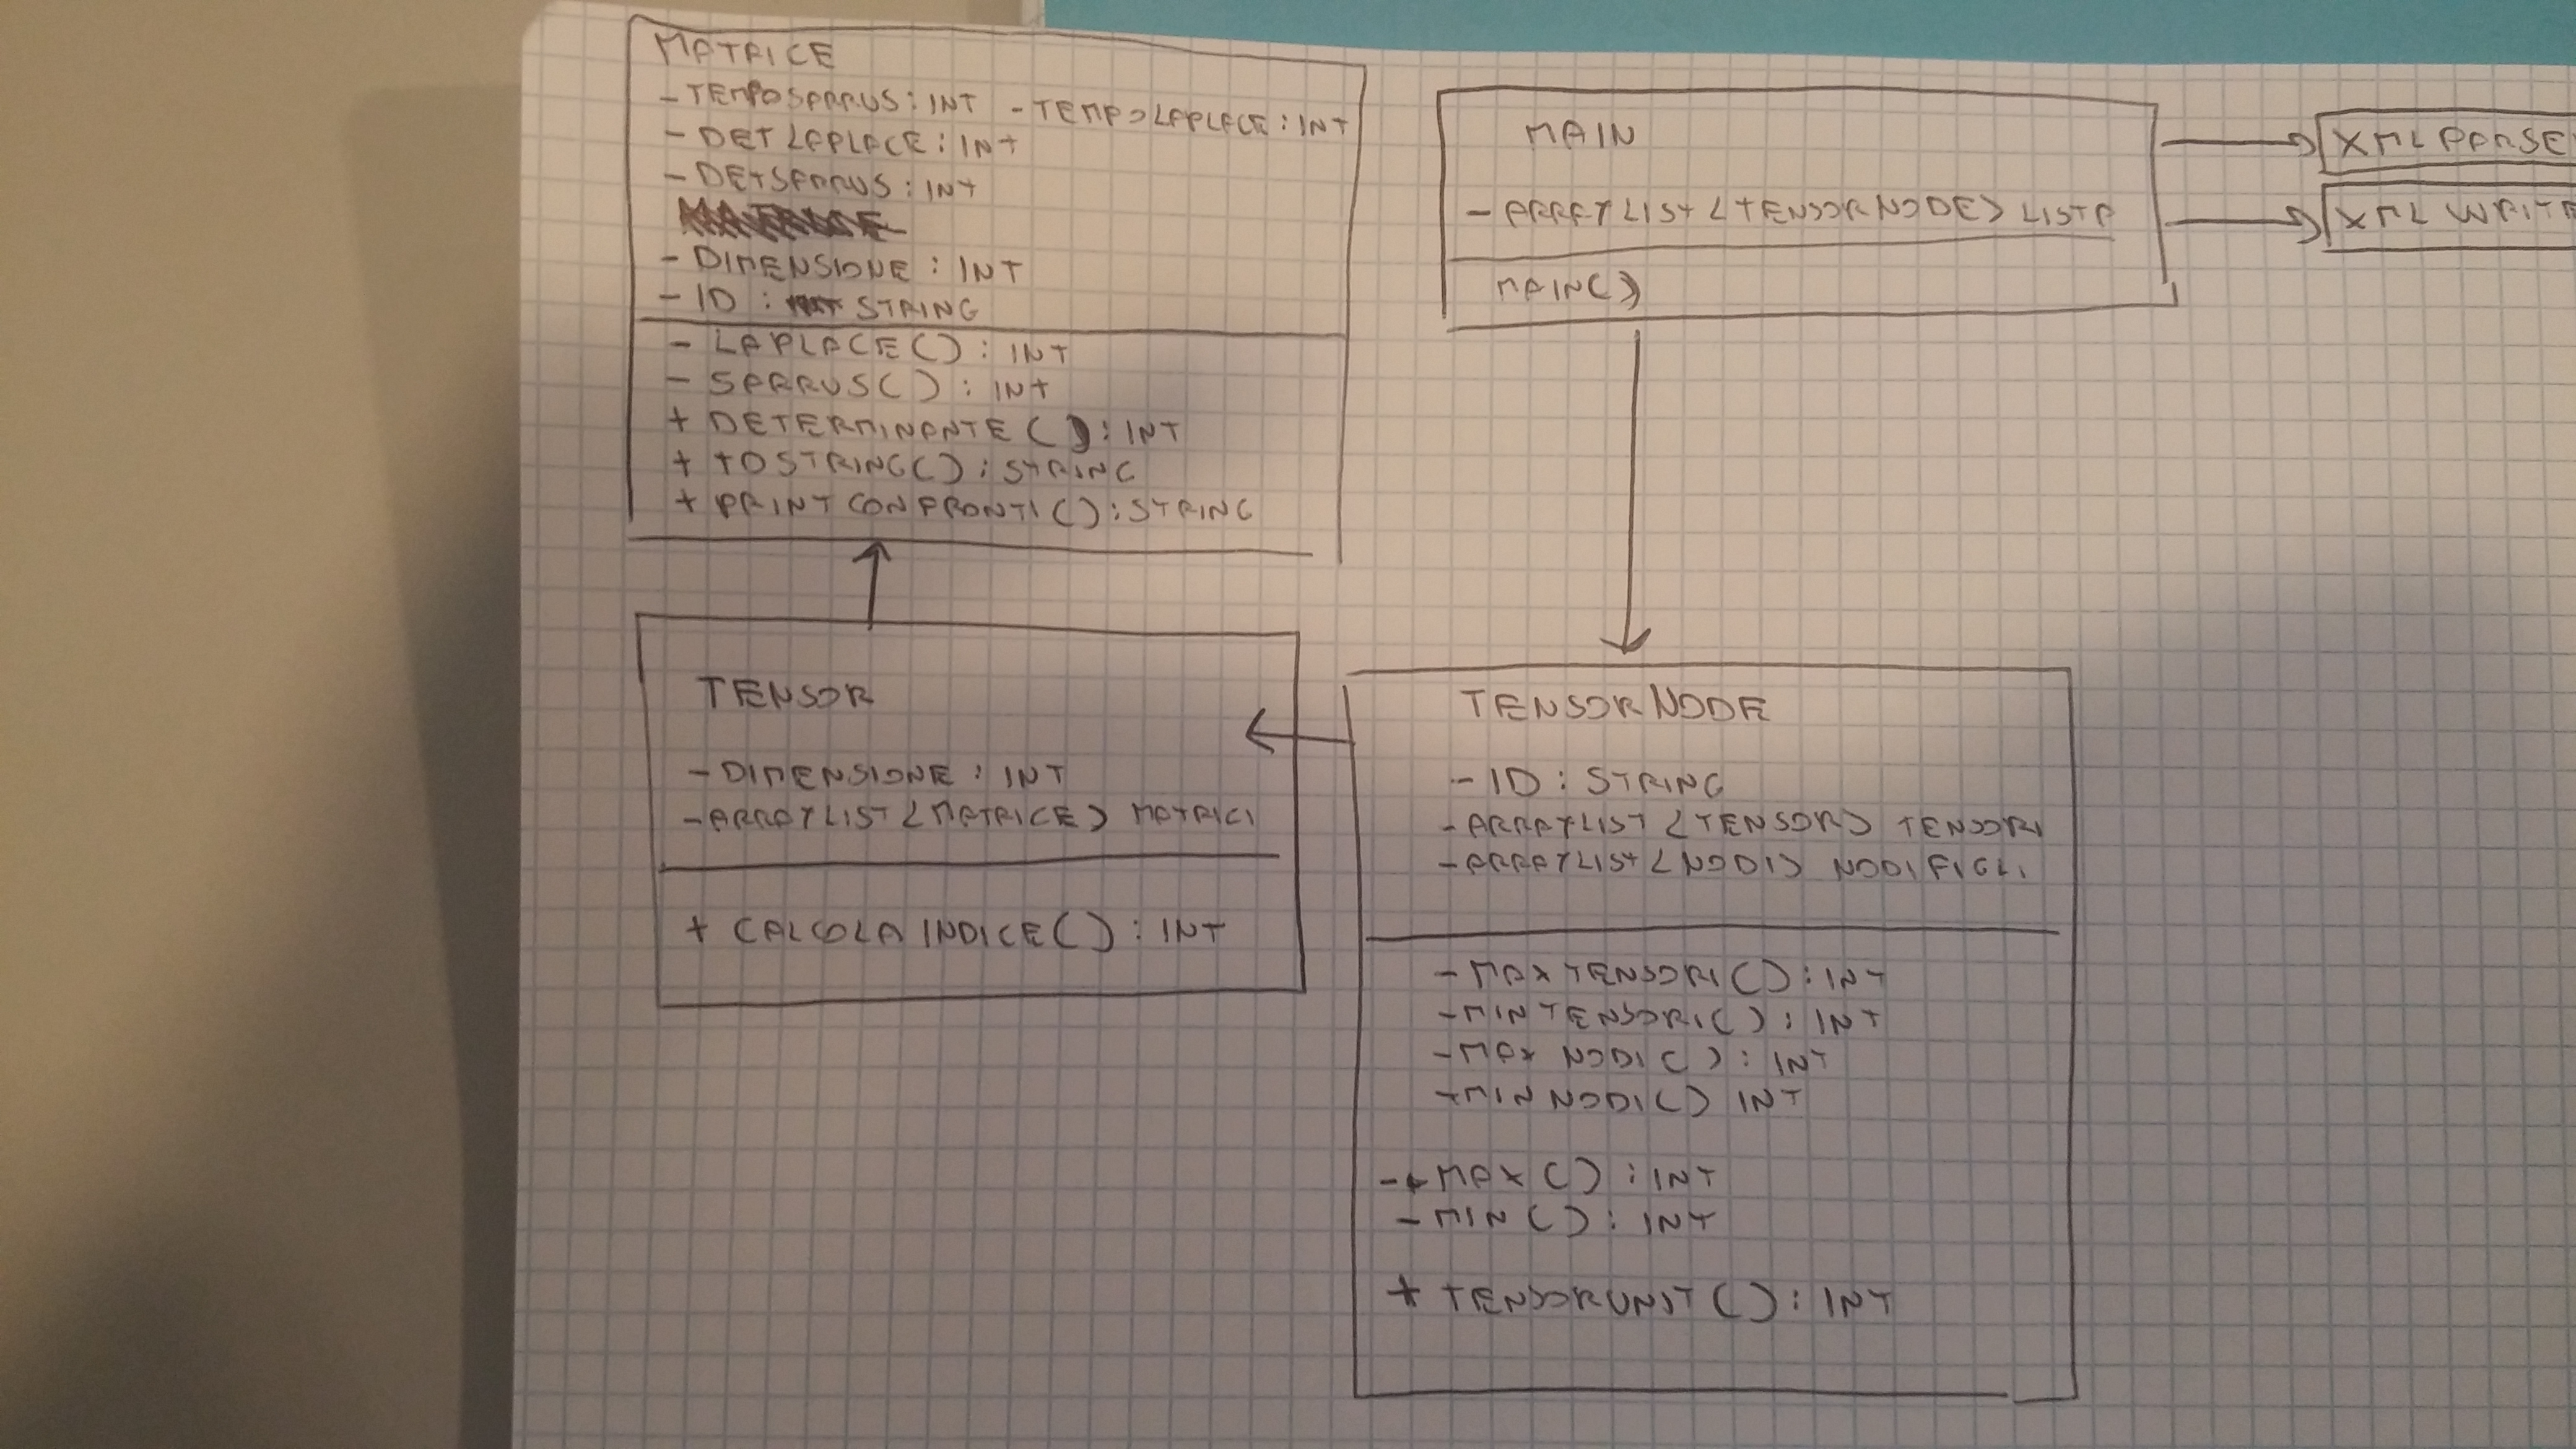 MATRICE
- TEMPOSARUS : INT - TEMPOLAPLACE : INT
- DET LAPLACE : INT
- DETSARUS : INT
- DIMENSIONE : INT
- ID : STRING
- LAPLACE() : INT
- SARRUS() : INT
+ DETERMINANTE () : INT
+ TOSTRING() : STRING
+ PRINT CONFRONTI () : STRING
TENSOR
- DIMENSIONE : INT
- ARRAYLIST <MATRICE> MATRICI
+ CALCOLA INDICE () : INT
MAIN
- ARRAY LIST <TENSOR NODE> LISTA
MAIN()
XML PARSE
XML WRITE
TENSOR NODE
- ID : STRING
- ARRAYLIST <TENSOR> TENSORI
- ARRAYLIST <NODI> NODI FIGLI
- MAX TENSORI () : INT
- MIN TENSORI () : INT
- MAX NODI () : INT
- MIN NODI () INT
- + MAX () : INT
- MIN () : INT
+ TENSORUNIT () : INT